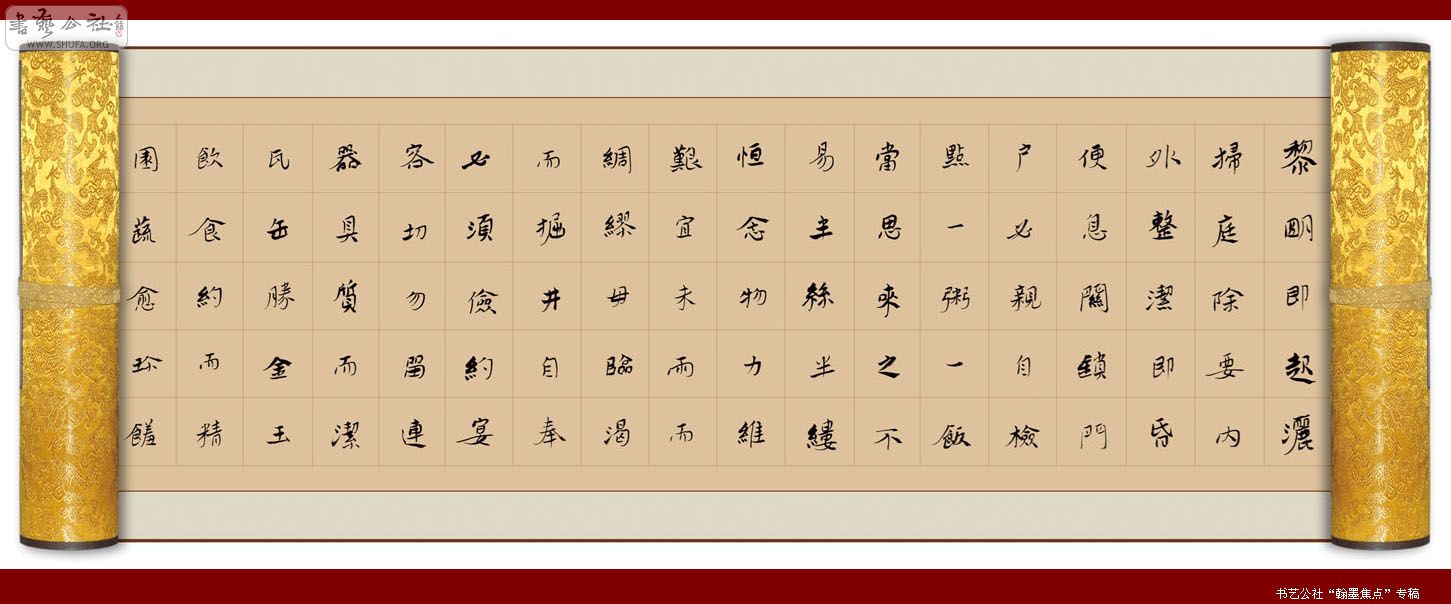 書藝公社
WWW.SHUFA.ORG
黎明即起灑
掃庭除要内
外整潔即昏
便息關鎖門
户必親自檢
點一粥一飯
當思來之不
易半絲半縷
恒念物力維
艱宜未雨而
綢繆毋臨渴
而掘井自奉
必須儉約宴
客切勿留連
器具質而潔
瓦缶勝金玉
飲食約而精
園蔬愈珍饈
书艺公社“翰墨焦点”专稿